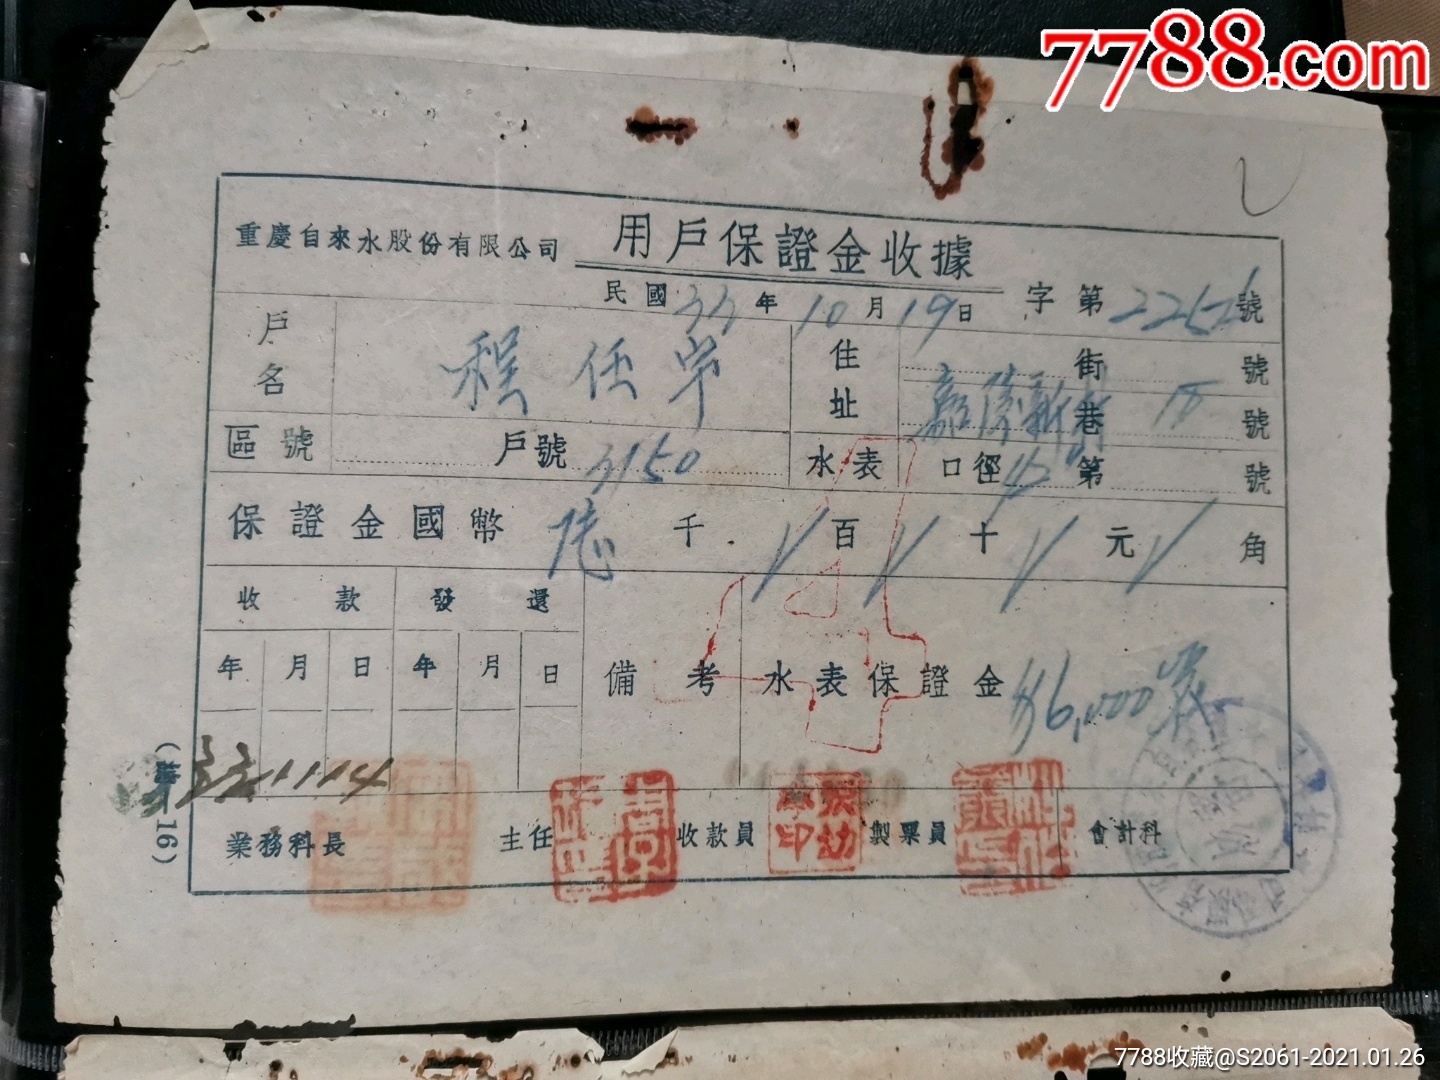 7788.com
重慶自來水股份有限公司 用戶保證金收據
民國33年10月19日 字第號
戶名 程任宇 住址 街 號
嘉陵新村 巷 號
區號 戶號 3150 水表 口徑 第 號
保證金國幣 陸 千 百 十 元 角
收款 發還
年 月 日 年 月 日 備考 水表保證金 $6,000
業務科長 主任 收款員 製票員 會計科
16)
7788收藏@S2061-2021.01.26